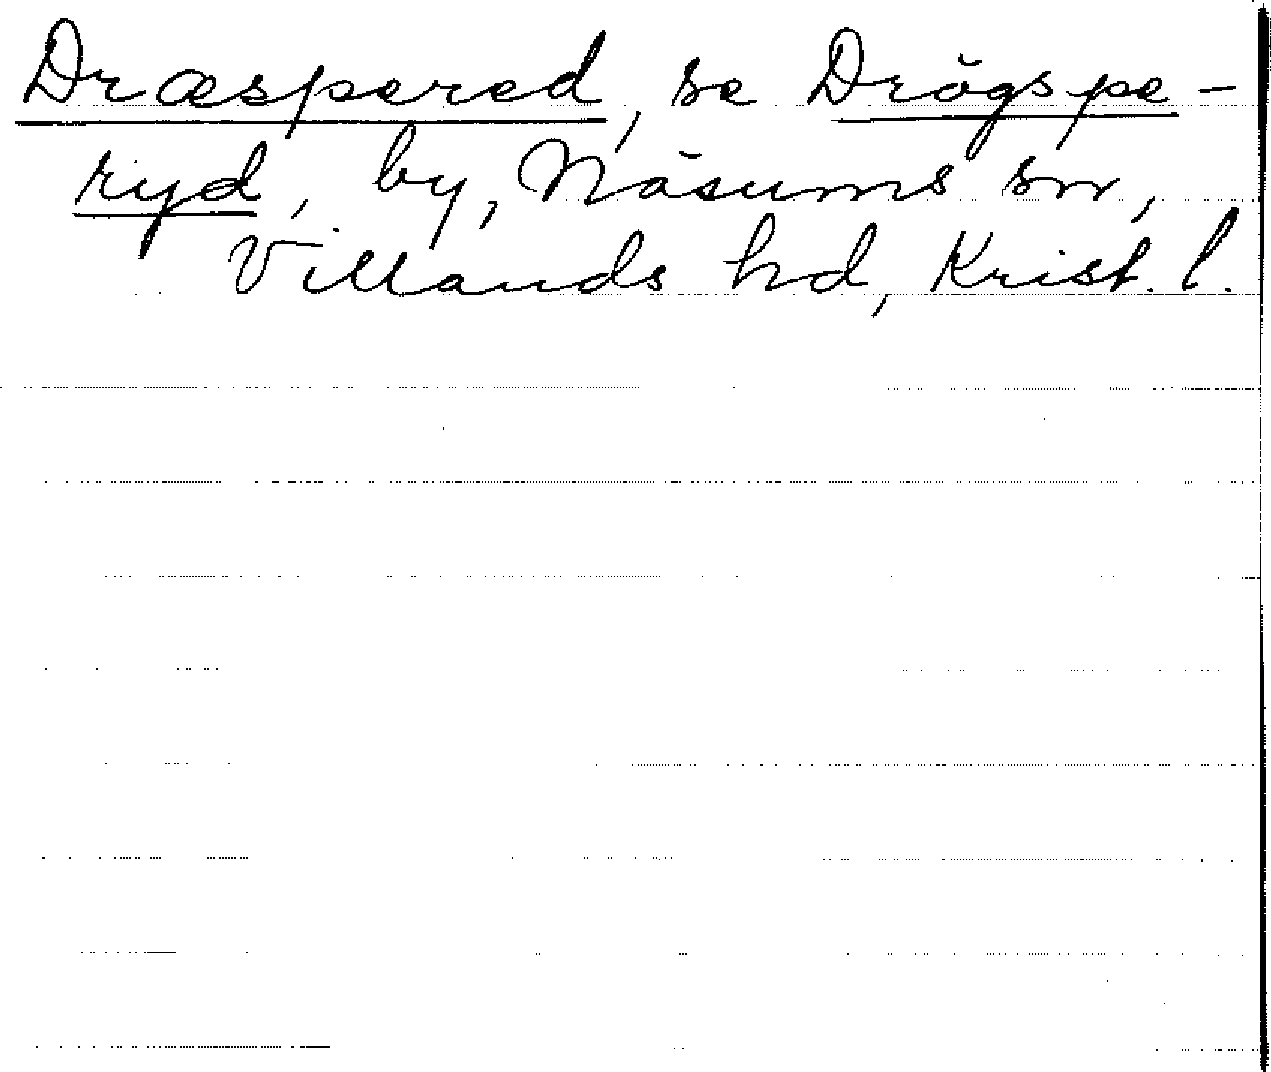 Dræspered, se Drögspe-
ryd, by, Näsums sn,
Villands hd, Krist. l.